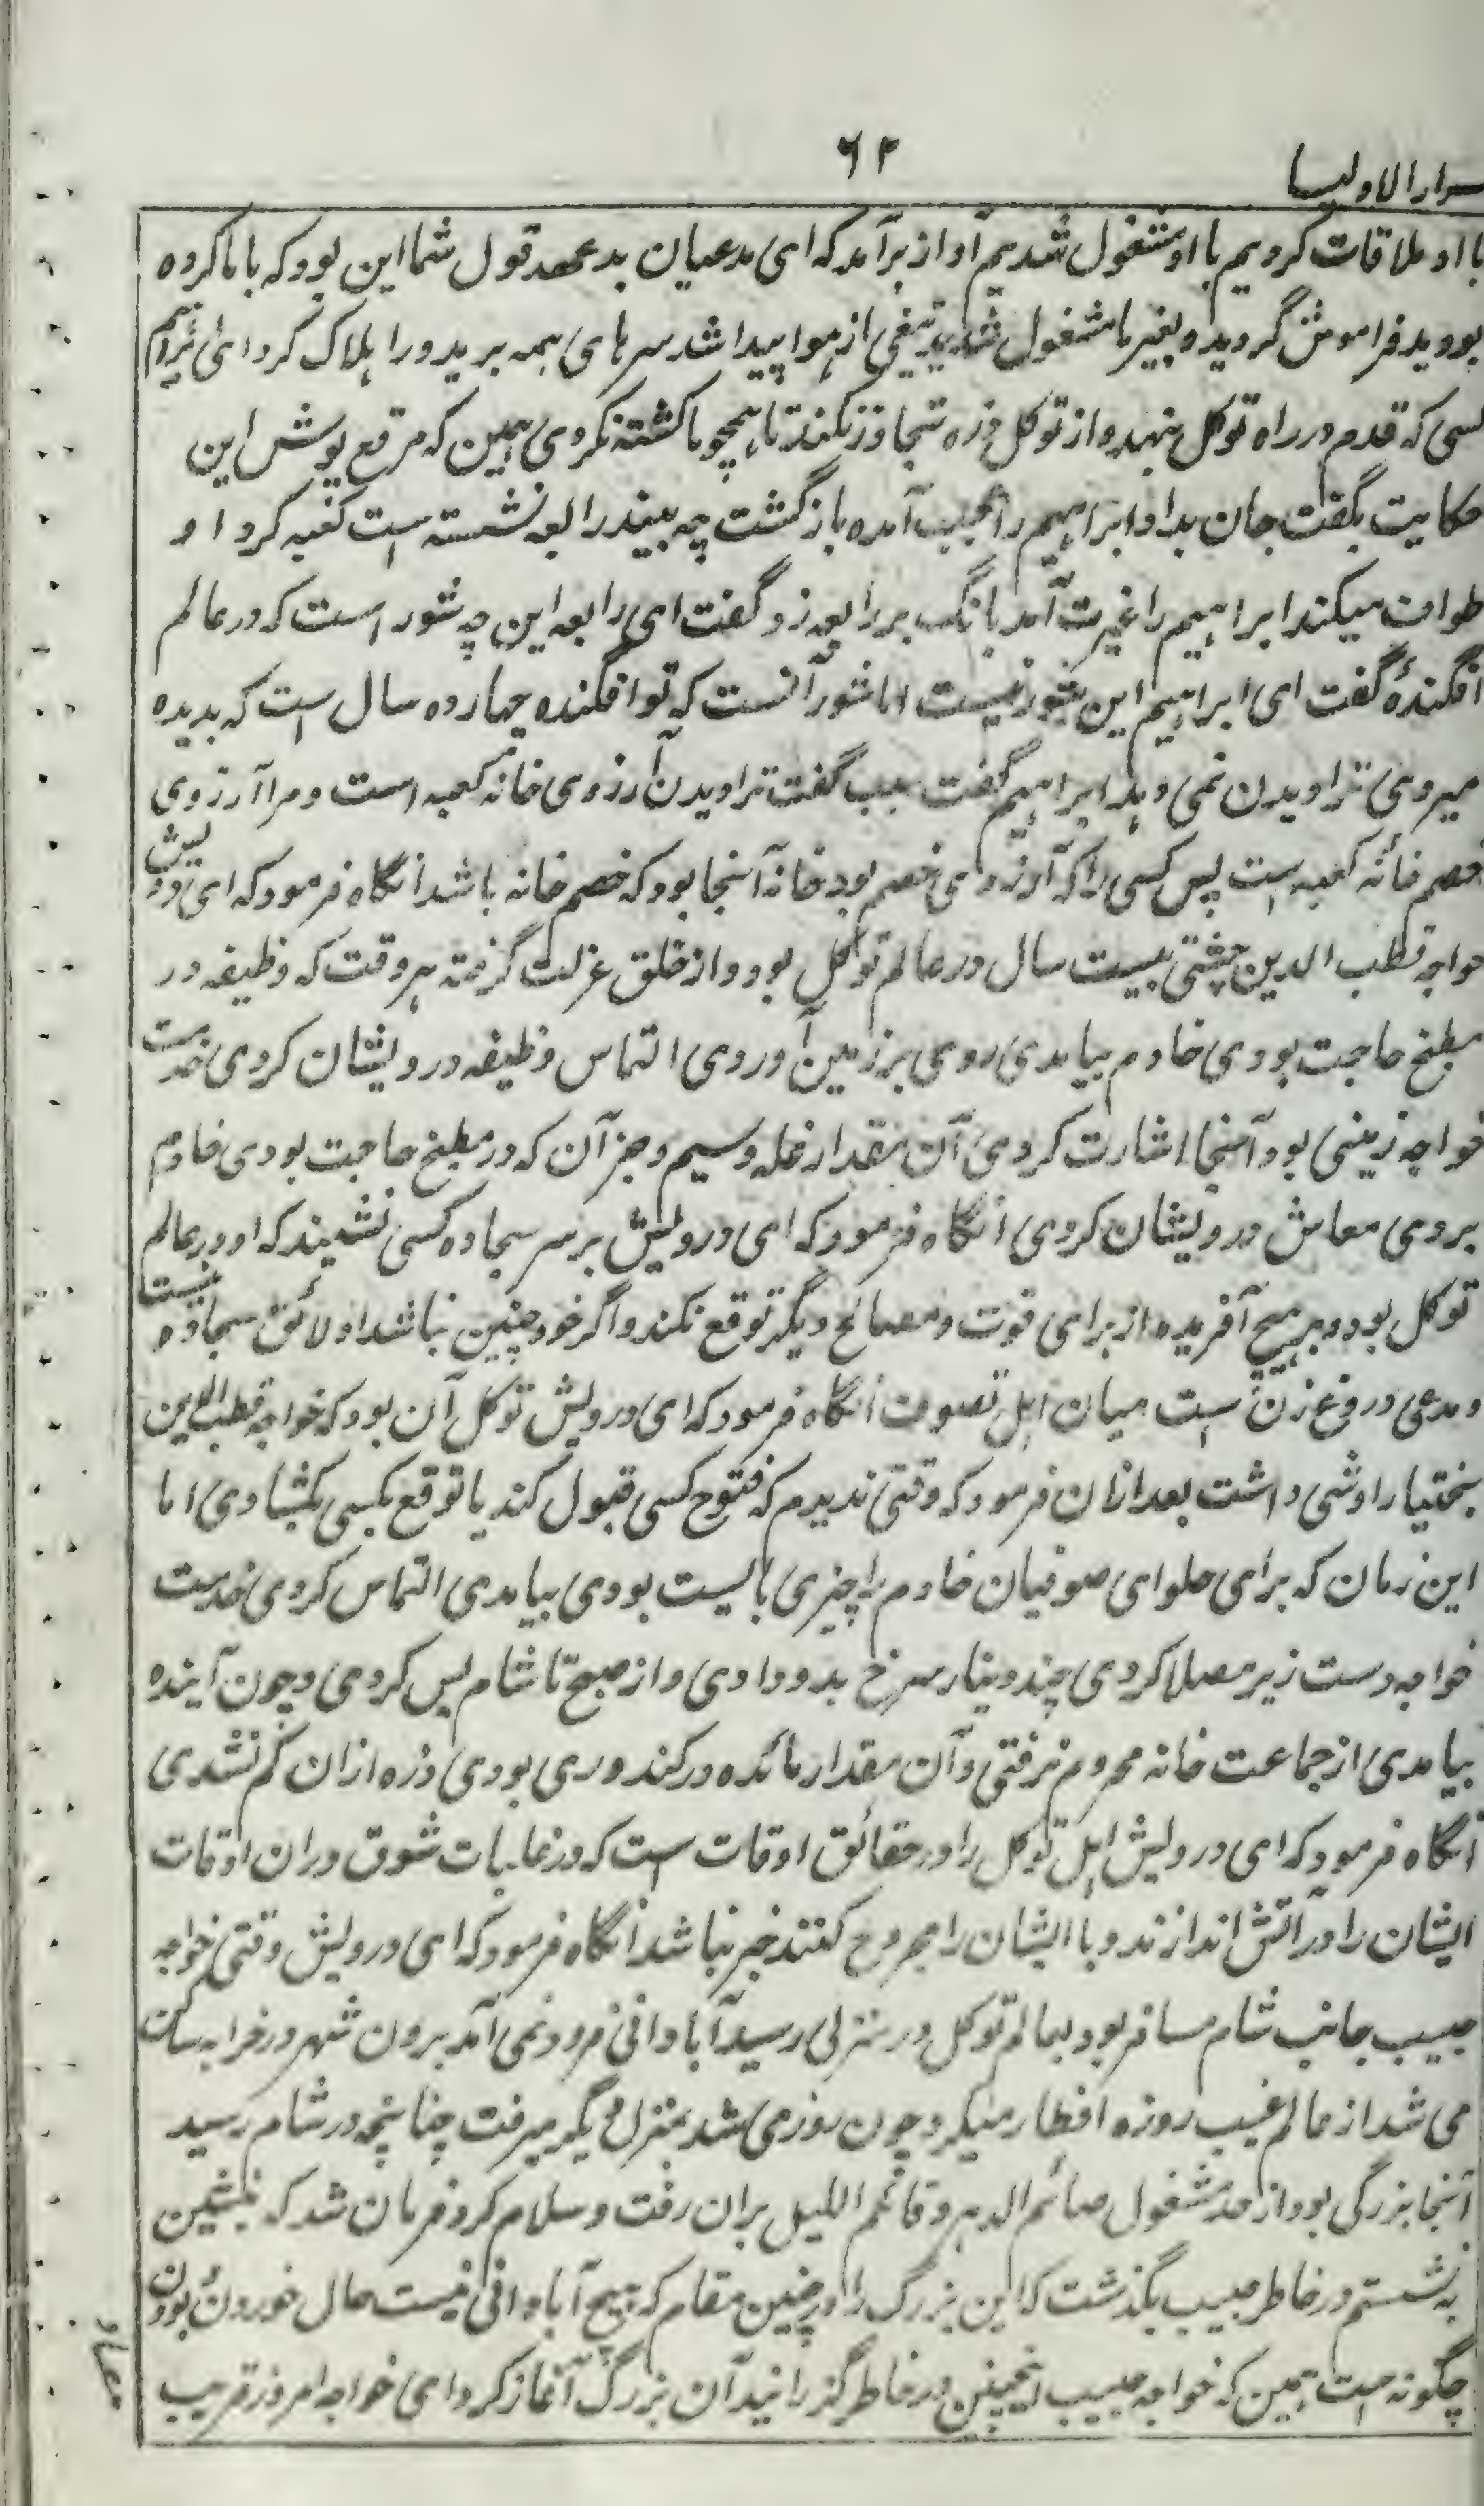 سرار الاولیا
۶۲
با او ملاقات کردیم با او مشغول شدیم آواز برآمد که ای مدعیان بدعهد قول شما این بود که با ما کرده
بودید فراموش گردید و بغیر ما مشغول شدید تیغی از هوا پیدا شد سرهای همه برید و را هلاک کرد ای ابراهیم
کسی که قدم در راه توکل بنهد و از توکل ذره تجاوز نکند تا همچو ما کشته نکردی همین که مرقع پوش این
حکایت بگفت جان بداد ابراهیم را عجب آمده بازگشت چه بیند رابعه نشسته است کعبه کرد او
طواف میکند ابراهیم را غیرت آمد بانگ بر رابعه زد گفت ای رابعه این چه شور است که در عالم
افگندهٔ گفت ای ابراهیم این شور نیست اما شور آنست که تو افگنده چهارده سال است که بدیده
میروی ترا دیدن نمی دهد ابراهیم گفت سبب گفت ترا دیدن آرزوی خانه کعبه است و مرا آرزوی
خصم خانه کعبه است پس کسی را که آرزوی خصم بود خانه آنجا بود که خصم خانه باشد انگاه فرمود که ای درویش
خواجه قطب الدین چشتی بیست سال در عالم توکل بود و از خلق عزلت گرفته هر وقت که وظیفه در
مطبخ حاجت بودی خادم بیامدی روی بر زمین آوردی التماس وظیفه درویشان کردی خدمت
خواجه زمینی بود آنجا اشارت کردی آن مقدار غله و سیم و جز آن که در مطبخ حاجت بودی خادم
بردی معاش درویشان کردی انگاه فرمود که ای درویش بر سر سجاده کسی نشیند که او در عالم
توکل بود و بهیچ آفریده از برای قوت و مصالح دیگر توقع نکند و اگر خود چنین نباشد او لائق سجاده نیست
و مدعی دروغ زن است میان اهل تصوف انگاه فرمود که ای درویش توکل آن بود که خواجه قطب الدین
بختیار اوشی داشت بعد ازان فرمود که وقتی ندیدم که فتوح کسی قبول کند یا توقع بکسی بکشادی اما
این زمان که برای حلوای صوفیان خادم را چیزی بالیست بودی بیامدی التماس کردی خدمت
خواجه دست زیر مصلا کردی چند دینار سرخ بدو دادی و از صبح تا شام بس کردی و چون آینده
بیامدی از جماعت خانه محروم نرفتی و آن مقدار مائده در کندوری بودی ذره ازان کم نشدی
انگاه فرمود که ای درویش اهل توکل را در حقائق اوقات است که در غایات شوق دران اوقات
ایشان را در آتش اندازند و یا ایشان را مجروح کنند خبر نباشد انگاه فرمود که ای درویش وقتی خواجه
حبیب جانب شام مسافر بود بعالم توکل در منزلی رسید آبادانی فرود نمی آمد برون شهر در خرابه ساکن
می شد از عالم غیب روزه افطار میکرد چون روز می شد بمنزل دیگر میرفت چنانچه در شام رسید
آنجا بزرگی بود از حد مشغول صائم الدهر و قائم اللیل بران رفت و سلام کرد فرمان شد که بنشین
بنشستم در خاطر حبیب بگذشت که این بزرگ را در چنین مقام که هیچ آبادانی نیست حال خوردن بودن
چگونه است همین که خواجه حبیب اینچنین در خاطر گذرانید آن بزرگ آغاز کرد ای خواجه امروز قریب